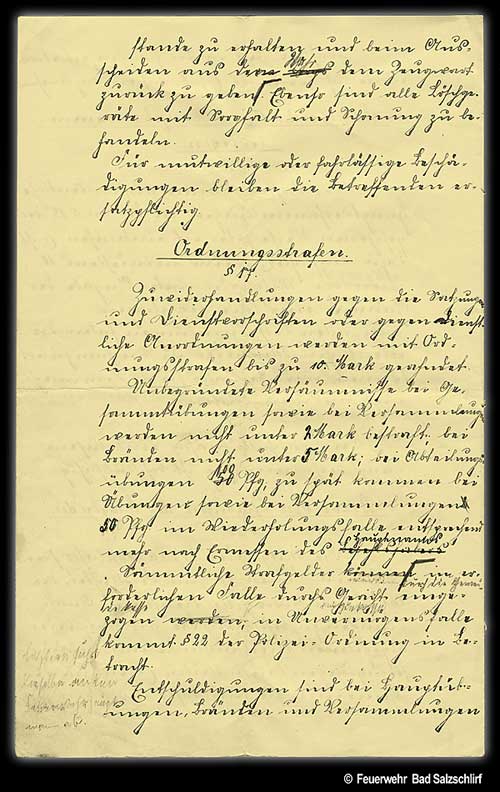 stande zu erhalten und beim Aus-
scheiden aus dem Wehr dem Zeugwart
zurück zu geben. Ebenso sind alle Löschge-
räte mit Sorgfalt und Schonung zu be-
handeln.
Für mutwillige oder fahrlässige Beschä-
digungen bleiben die Betreffenden er-
satzpflichtig.
Ordnungsstrafen.
§ 17.
Zuwiderhandlungen gegen die Satzungen
und Dienstvorschriften oder gegen dienst-
liche Anordnungen werden mit Ord-
nungsstrafen bis zu 10. Mark geahndet.
Unbegründete Versäumnisse bei Ge-
samtübungen sowie bei Versammlungen
werden nicht unter 2 Mark bestraft; bei
Bränden nicht unter 5 Mark; bei Abteilungs-
übungen 100 Pfg, zu spät kommen bei
Übungen sowie bei Versammlungen
50 Pfg im Wiederholungsfalle entsprechend
mehr nach Ermessen des Hauptmanns
Sämmtliche Strafgelder können im er-
forderlichen Falle durch Gericht einge-
zogen werden, in Unvermögensfalle
kommt § 22 der Polizei-Ordnung in Be-
tracht.
Entschuldigungen sind bei Hauptüb-
ungen, Bränden und Versammlungen
© Feuerwehr Bad Salzschlirf